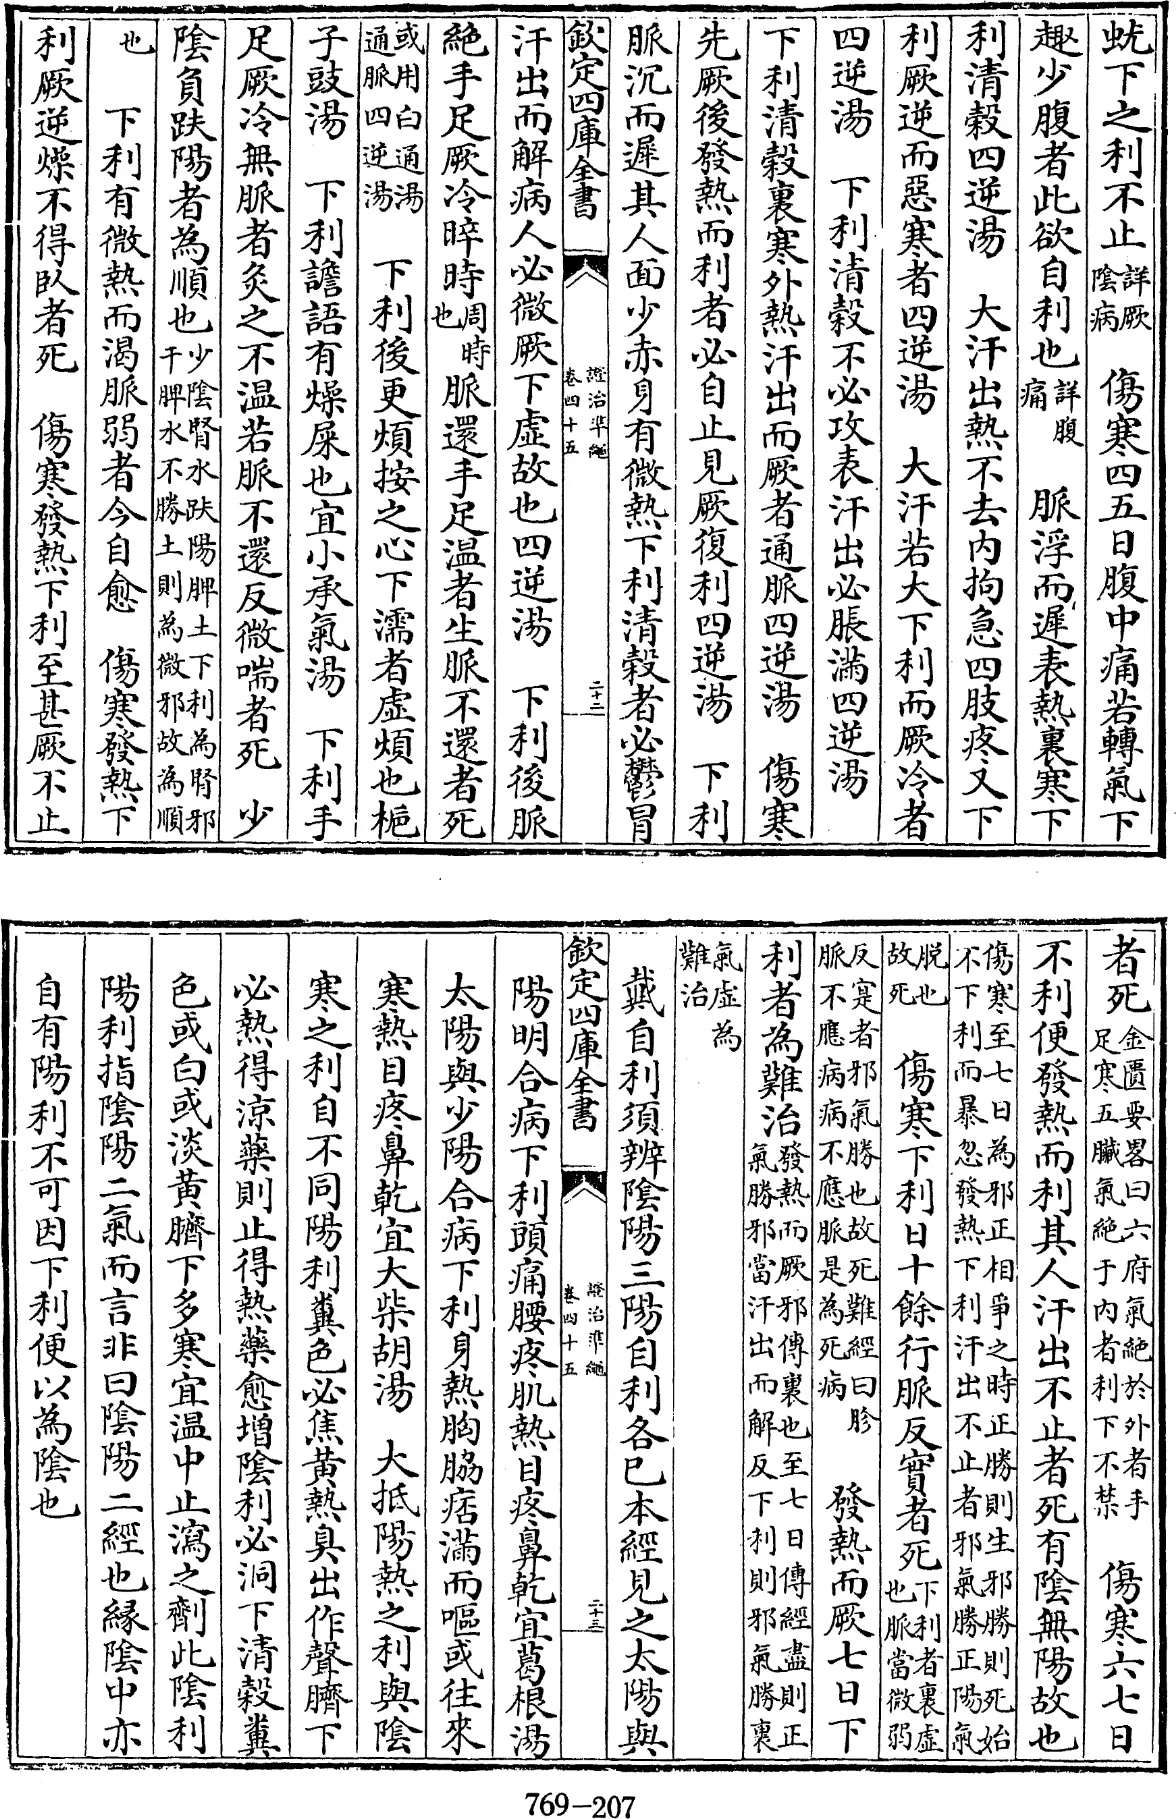 蚘下之利不止詳厥陰病　傷寒四五日腹中痛若轉氣下
趣少腹者此欲自利也詳腹痛　脈浮而遲表熱裏寒下
利清穀四逆湯　大汗出熱不去内拘急四肢疼又下
利厥逆而惡寒者四逆湯　大汗若大下利而厥冷者
四逆湯　下利清穀不必攻表汗出必脹滿四逆湯
下利清穀裏寒外熱汗出而厥者通脈四逆湯　傷寒
先厥後發熱而利者必自止見厥復利四逆湯　下利
脈沉而遲其人面少赤身有微熱下利清穀者必鬱冒
欽定四庫全書　證治準繩卷四十五　二十二
汗出而解病人必微厥下虚故也四逆湯　下利後脈
絶手足厥冷晬時周時也脈還手足温者生脈不還者死
或用白通湯通脈四逆湯　下利後更煩按之心下濡者虚煩也梔
子豉湯　下利譫語有燥屎也宜小承氣湯　下利手
足厥冷無脈者灸之不温若脈不還反微喘者死　少
陰負趺陽者為順也少陰腎水趺陽脾土下利為腎邪干脾水不勝土則為微邪故為順
也　下利有微熱而渴脈弱者今自愈　傷寒發熱下
利厥逆燥不得臥者死　傷寒發熱下利至甚厥不止
者死金匱要畧曰六府氣絶於外者手足寒五臟氣絶于内者利下不禁　傷寒六七日
不利便發熱而利其人汗出不止者死有陰無陽故也
傷寒至七日為邪正相爭之時正勝則生邪勝則死始不下利而暴忽發熱下利汗出不止者邪氣勝正陽氣
脱也故死　傷寒下利日十餘行脈反實者死下利者裏虚也脈當微弱
反寔者邪氣勝也故死難經曰脈不應病病不應脈是為死病　發熱而厥七日下
利者為難治發熱而厥邪傳裏也至七日傳經盡則正氣勝邪當汗出而解反下利則邪氣勝裏
氣虚為難治
戴自利須辨陰陽三陽自利各已本經見之太陽與
欽定四庫全書　證治準繩卷四十五　二十三
陽明合病下利頭痛腰疼肌熱目疼鼻乾宜葛根湯
太陽與少陽合病下利身熱胸脇痞滿而嘔或往來
寒熱目疼鼻乾宜大柴胡湯　大抵陽熱之利與陰
寒之利自不同陽利糞色必焦黄熱臭出作聲臍下
必熱得涼藥則止得熱藥愈增陰利必洞下清穀糞
色或白或淡黄臍下多寒宜温中止瀉之劑此陰利
陽利指陰陽二氣而言非曰陰陽二經也緣陰中亦
自有陽利不可因下利便以為陰也
769-207